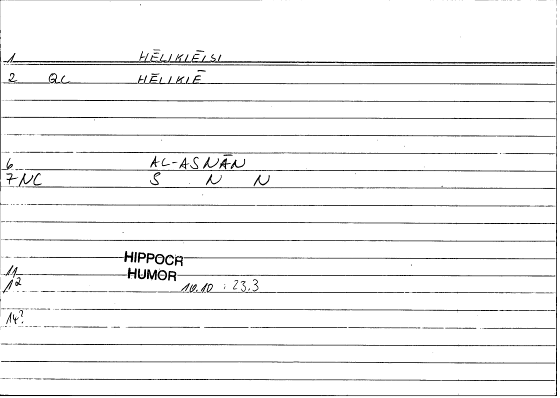 1 HĒLIKIĒISI
2 QC HĒLIKIĒ
6 AL-ASNĀN
7 NC S N N
HIPPOCR
11 HUMOR
12 10.10 : 23.3
14?